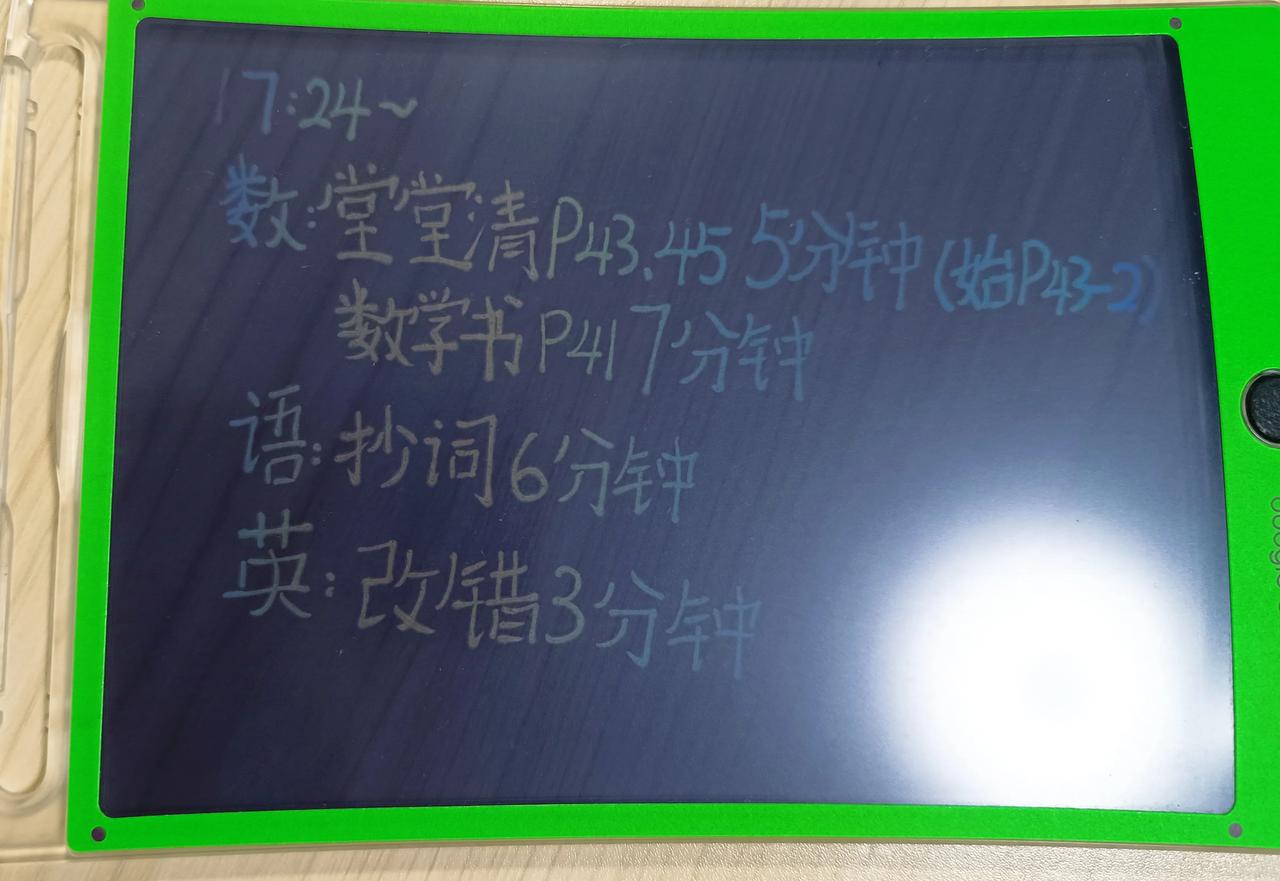 17:24~
数:堂堂清P43.45 5分钟(始P43-2)
数学书P41 7分钟
语:抄词6分钟
英:改错3分钟